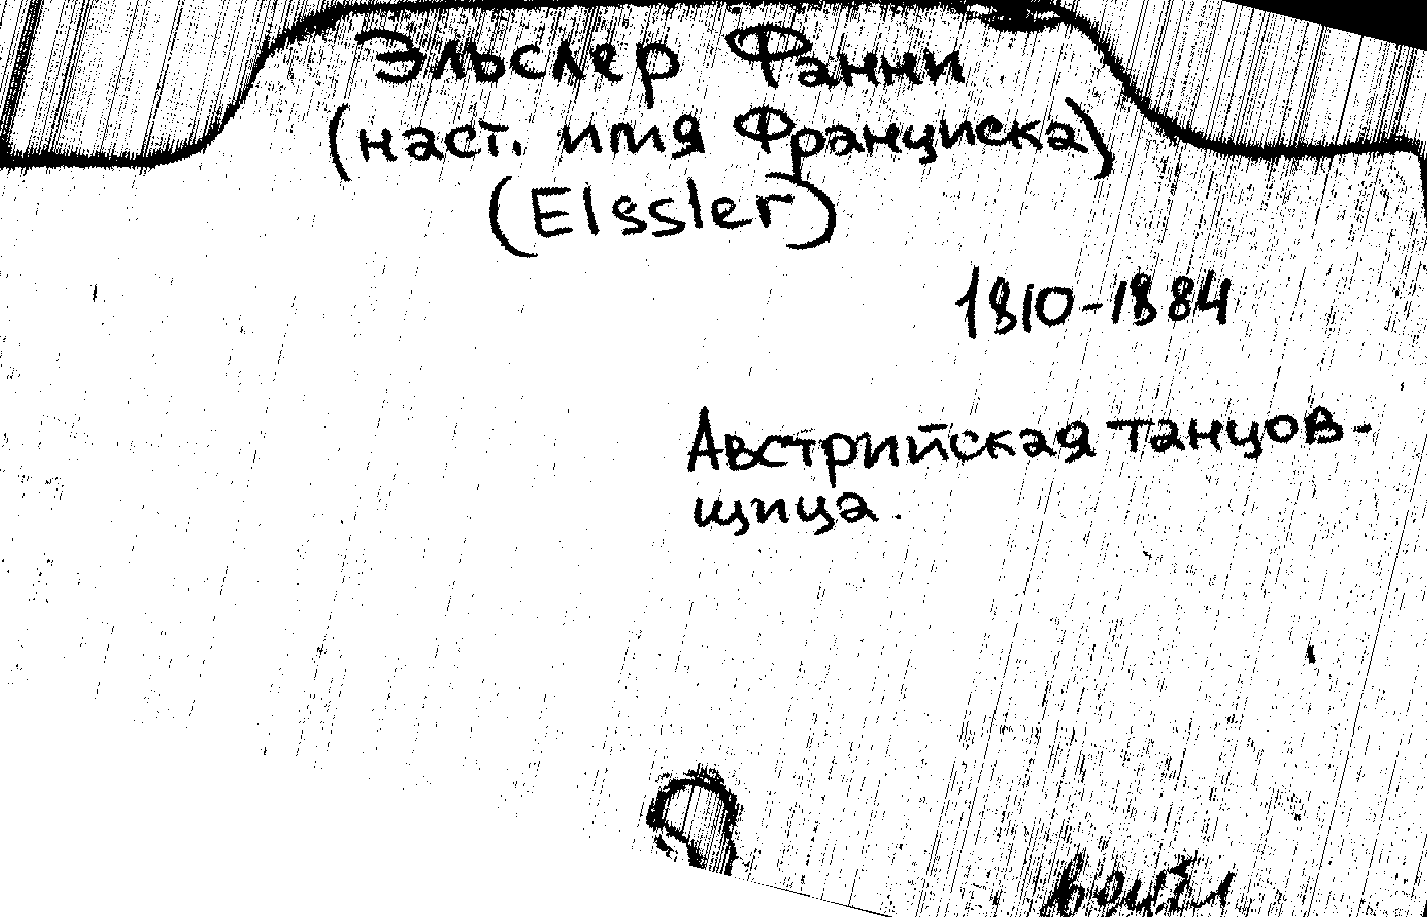 Эльслер Фанни
(наст. имя Франциска)
(Elssler)
1810-1884
Австрийская танцов-
щица.